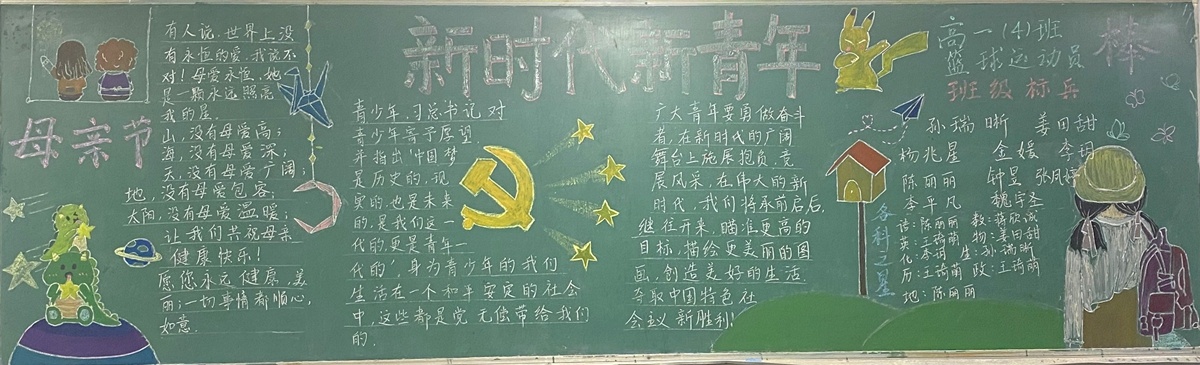 母亲节
有人说,世界上没
有永恒的爱,我说不
对!母爱永恒,她
是一颗永远照亮
我的星。
山,没有母爱高;
海,没有母爱深;
天,没有母爱广阔;
地,没有母爱包容;
太阳,没有母爱温暖;
让我们共祝母亲
健康快乐!
愿您永远健康,美
丽;一切事情都顺心,
如意.
新时代新青年
青少年,习总书记对
青少年寄予愿望
并指出"中国梦
是历史的,现
实的,也是未来
的,是我们这一
代的,更是青年一
代的",身为青少年的我们
生活在一个和平安定的社会
中,这些都是党无偿带给我们
的.
广大青年要勇做奋斗
者,在新时代的广阔
舞台上施展抱负,竞
展风采,在伟大的新
时代,我们将承前启后,
继往开来,瞄准更高的
目标,描绘更美丽的图
画,创造美好的生活
夺取中国特色社
会主义新胜利!
高一(4)班
篮球运动员
棒
班级标兵
孙瑞晰 姜田甜
杨兆星 金媛 李玥
陈丽丽 钟昱 张凤婷
李平凡 魏宇圣
各科之星
语:陈丽丽 数:蒋欣诚
英:王荷萌 物:姜田甜
化:李玥 生:孙瑞晰
历:王荷萌 政:王荷萌
地:陈丽丽